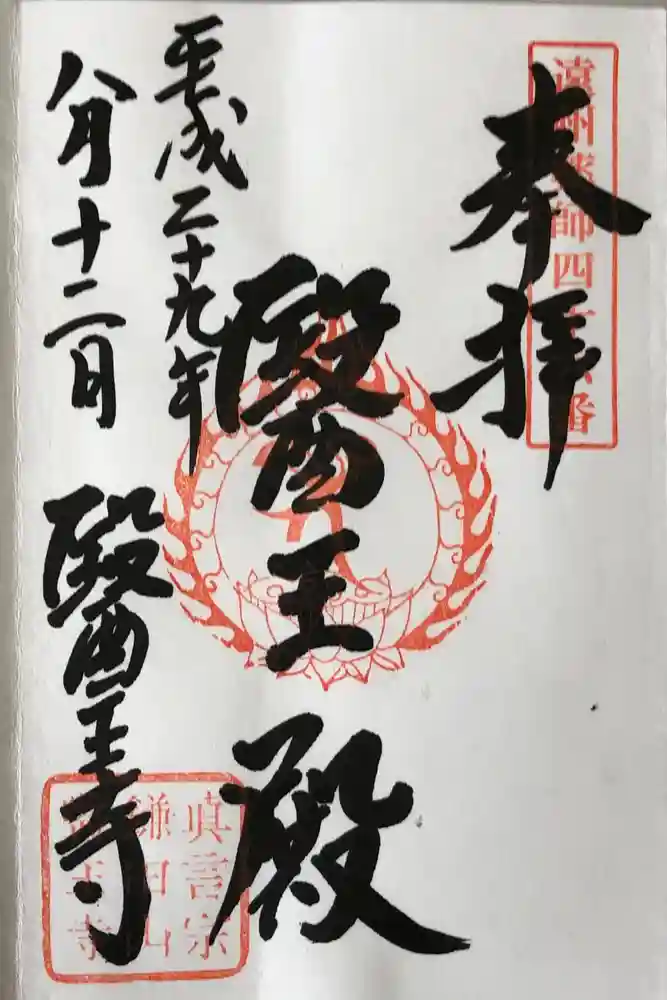 奉拝
遠州薬師四十番
醫王殿
平成二十九年
八月十二日
醫王寺
眞言宗
鎌田山
醫王寺